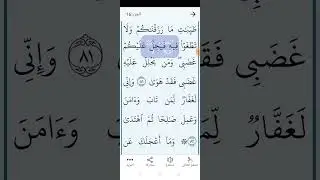 طَيِّبَٰتِ مَا رَزَقْنَٰكُمْ وَلَا
تَطْغَوْا۟ فِيهِ فَيَحِلَّ عَلَيْكُمْ
غَضَبِى وَمَن يَحْلِلْ عَلَيْهِ
غَضَبِى فَقَدْ هَوَىٰ ٨١ وَإِنِّى
لَغَفَّارٌ لِّمَن تَابَ وَءَامَنَ
وَعَمِلَ صَٰلِحًا ثُمَّ ٱهْتَدَىٰ
٨٢ ۞ وَمَآ أَعْجَلَكَ عَن